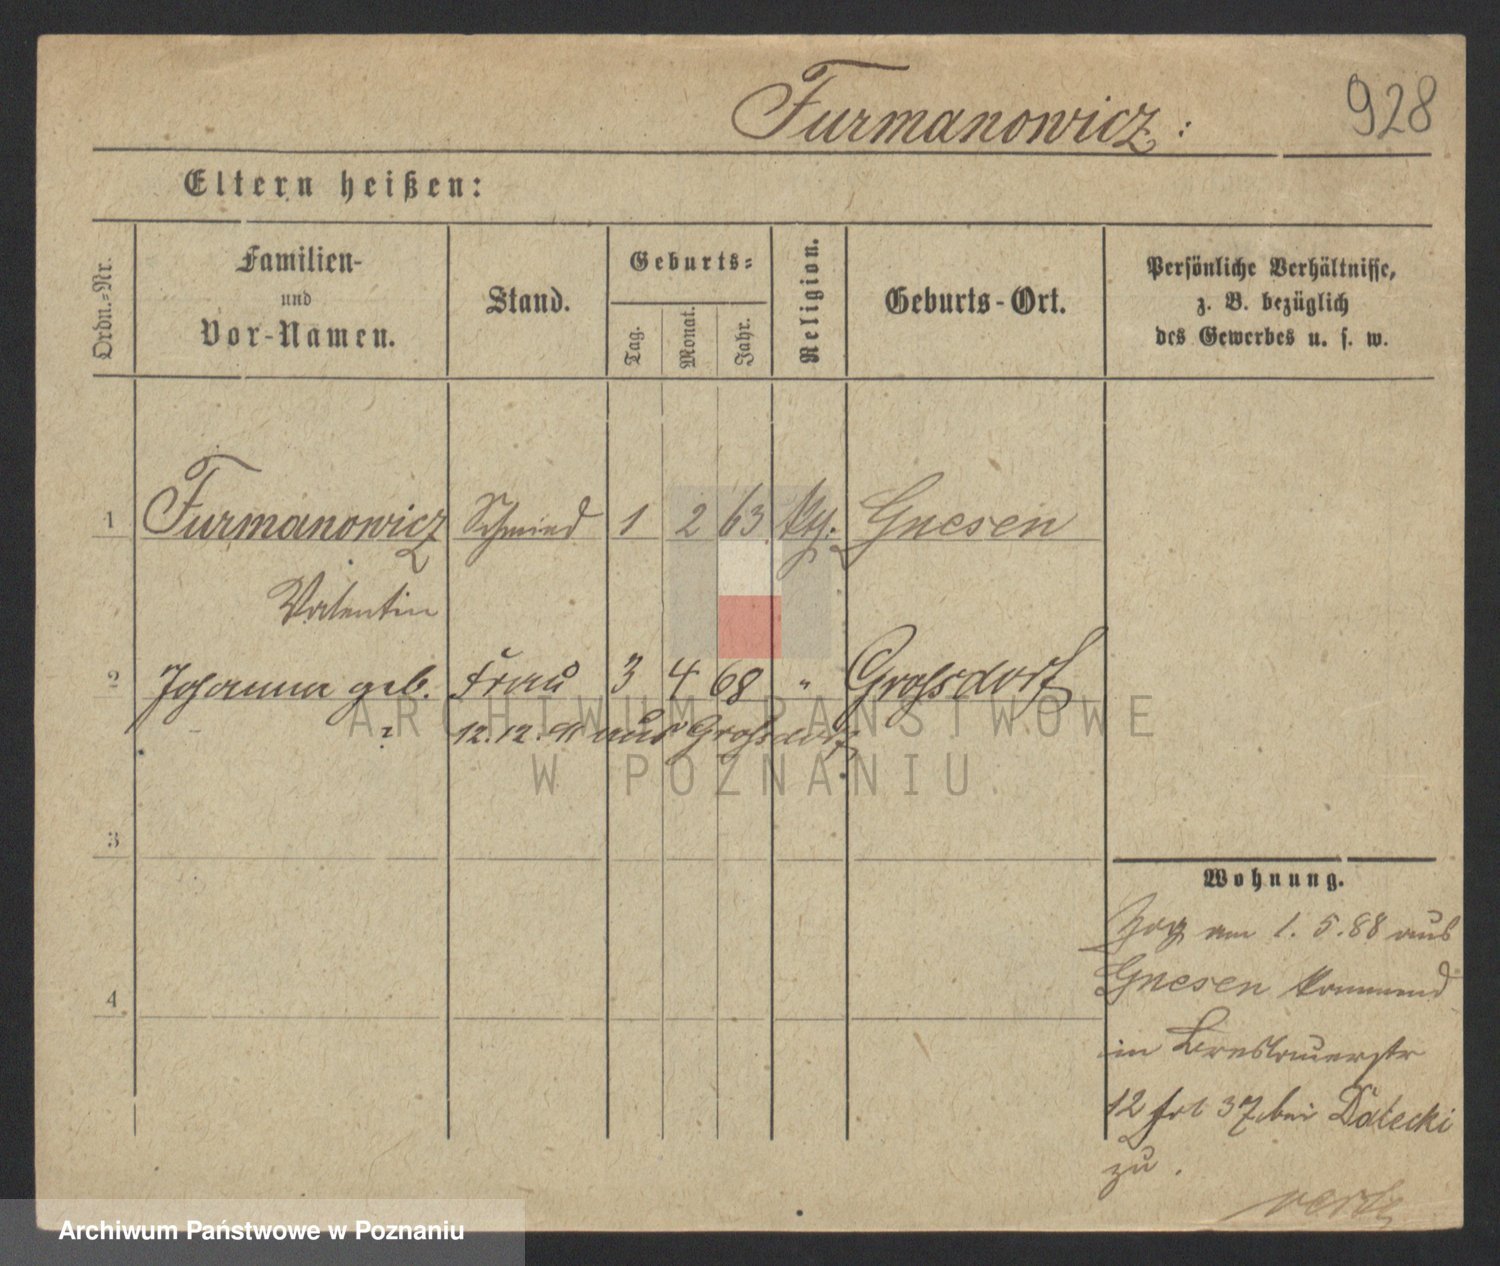 Furmanowicz:
928
Eltern heißen:
Ordn.-Nr.
Familien-
und
Vor-Namen.
Stand.
Geburts-
Tag.
Monat.
Jahr.
Religion.
Geburts-Ort.
Persönliche Verhältnisse,
z. B. bezüglich
des Gewerbes u. s. w.
1 Furmanowicz Schmied 1 2 63 ktl. Gnesen
Valentin
2 Johanna geb. Frau 3 4 68 " Grossdorf
? 12.12.91 aus Grossdorf
ARCHIWUM PAŃSTWOWE
W POZNANIU
3
4
Wohnung.
Zog am 1.5.88 aus
Gnesen kommend
in Breslauerstr
12 37 bei Datecki
zu.
Archiwum Państwowe w Poznaniu